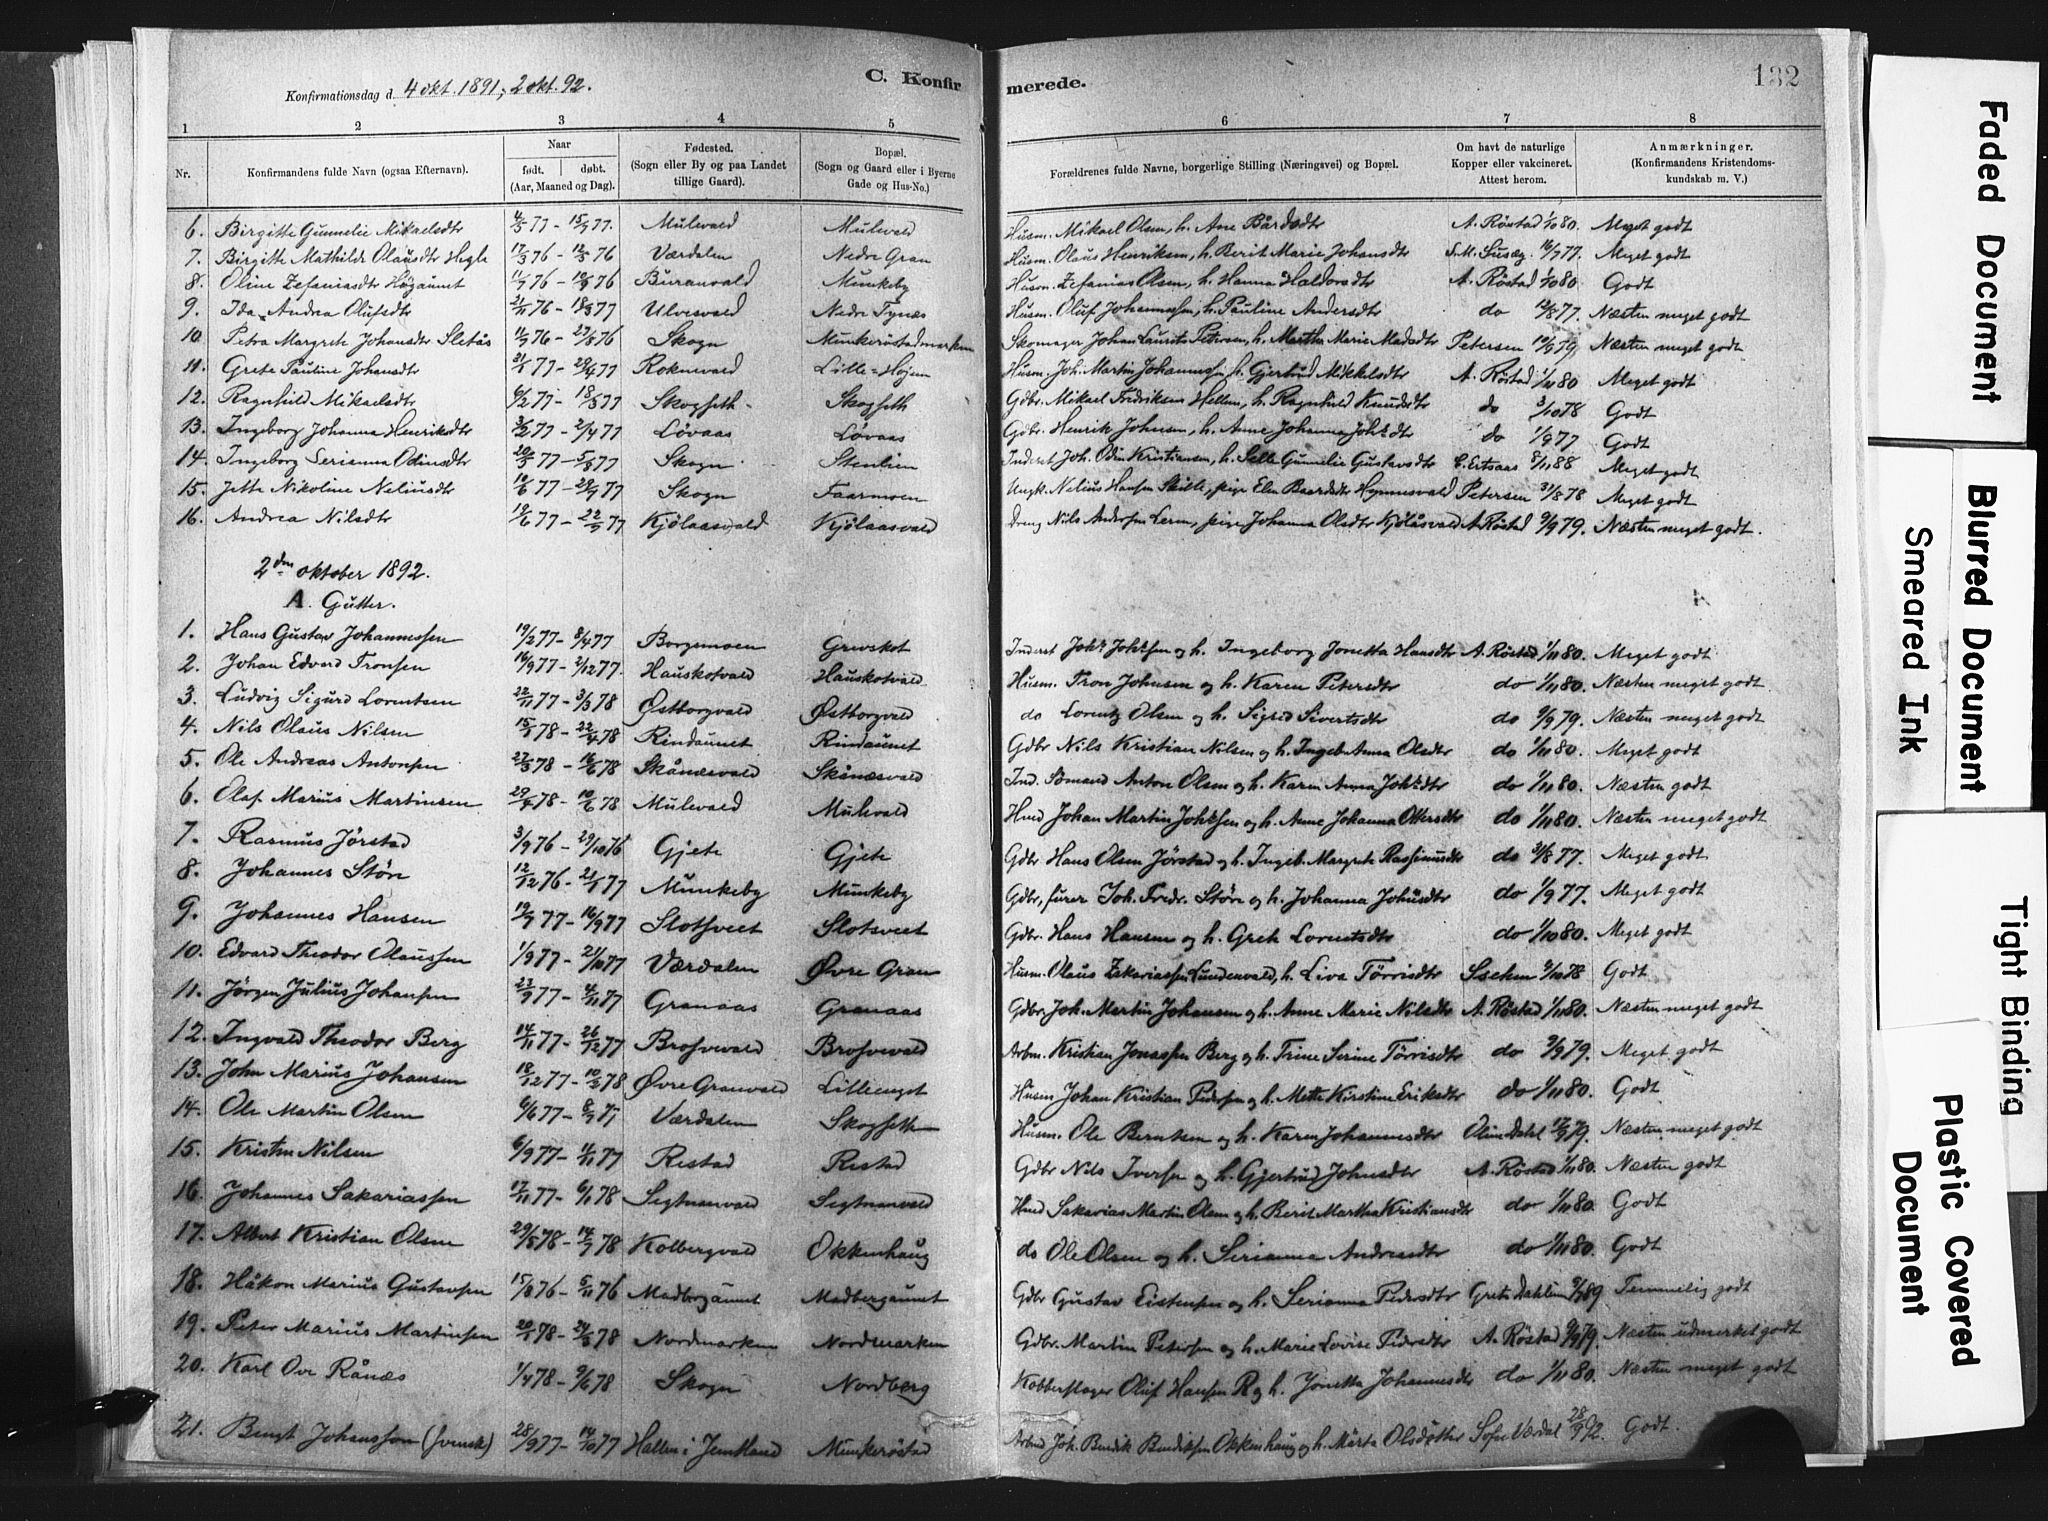 C. Konfir
merede.
132
Konfirmationsdag d. 4 okt. 1891, 2 okt. 92.
1 2 3 4 5 6 7 8
Nr. Konfirmandens fulde Navn (ogsaa Efternavn). Naar født. døbt. (Aar, Maaned og Dag). Fødested. (Sogn eller By og paa Landet tillige Gaard). Bopæl. (Sogn og Gaard eller i Byerne Gade og Hus-No.) Forældrenes fulde Navne, borgerlige Stilling (Næringsvei) og Bopæl. Om havt de naturlige Kopper eller vakcineret. Attest herom. Anmærkninger. (Konfirmandens Kristendoms-kundskab m. V.)
6. Birgitte Gunnelie Mikaelsdtr 77 - 77. Mulevald Mulevald Husm. Mikael Olsen, h. Ane Bårdsdtr A. Röstad 1/10 80. Meget godt
7. Birgitte Mathilde Olausdtr Hegle 17/3 76 - 76 Værdalen Nedre Gran Husm. Olaus Henriksen, h. Berit Marie Johansdtr 16/9 77. Meget godt
8. Oline Zefaniasdtr 76 - 76 Buranvald Munkeby Husm. Zefanias Olsen, h. Hanna Haldorsdtr A. Röstad 1/10 80. Godt
9. Ida Andrea Olufsdtr 21/11 76 - 18/3 77 Ulvesvald Nedre Tynes Husm. Oluf Johannessen, h. Pauline Andersdtr do 12/8 77. Næsten meget godt
10. Petra Margrete Johansdtr Sletås 76 - 27/8 76 Skogn Munkeröstadmarken Skomager Johan Laurits Petersen, h. Martha Marie Madsdtr Petersen 79, Næsten meget godt
11. Grete Pauline Johansdtr 31/1 77 - 29/4 77 Roknevald Lille-Hojem Husm. Joh. Martin Johannessen, h. Gjertrud Mikkelsdtr A. Röstad 1/11 80 Meget godt
12. Ragnhild Mikaelsdtr 6/2 77 - 18/3 77 Skogseth Skogseth Gdbr. Mikael Fredriksen Hellem, h. Ragnhild Knudsdtr do 3/10 78 Godt
13. Ingeborg Johanna Henriksdtr 3/2 77 - 2/4 77 Løvaas Løvaas Gdbr. Henrik Johnsen, h. Anne Johanna Johsdtr do 1/9 77 Godt
14. Ingeborg Serianna Odinsdtr 77 - 77 Skogn Stenlien Inderst Joh. Odin Kristiansen, h. Gunnelie Gustavsdtr C. Ertsaas 8/11 88 Meget godt
15. Jette Nikoline Neliusdtr 77 - 77 Skogn Faarmoen Ungk. Nelius Hansen Skille, pige Elen Baardsdtr Hynnesvald Petersen 31/8 78 Meget godt
16. Andrea Nilsdtr 77 - 77 Kjölaasvald Kjölaasvald dreng Nils Andersen Lerm, pige Johanna Olsdtr Kjölåsvald A. Röstad 9/9 79. Næsten meget godt.
2den oktober 1892.
A. Gutter.
1. Hans Gustav Johannessen 19/2 77 - 8/4 77 Borgemoen Grevskot Inderst Johs Johssen og h. Ingeborg Jonetta Hansdtr A. Röstad 1/11 80. Meget godt
2. Johan Edvard Tronsen 16/9 77 - 2/12 77. Hauskotvald Hauskotvald Husm. Tron Johnsen og h. Karen Petersdtr do 1/11 80. Næsten meget godt.
3. Ludvig Sigurd Lorentsen 22/11 77 - 3/3 78 Østborgvald Østborgvald do Lorentz Olsen og h. Sigrid Sivertsdtr do 9/9 79. Næsten meget godt
4. Nils Olaus Nilsen 78 - 22/4 78 Rindaunet Rindaunet Gdbr Nils Kristian Nilsen og h. Ingeb. Anna Olsdtr do 1/11 80. Meget godt
5. Ole Andreas Antonsen 27/3 78 - 16/6 78 Skånæsvald Skånæsvald Ind. Sömand Anton Olsen og h. Karen Anna Johsdtr do 1/11 80. Næsten godt
6. Olaf Marius Martinsen 29/4 78 - 10/6 78 Mulevald Mulevald Hmd Johan Martin Johssen og h. Anne Johanna Ottersdtr do 1/11 80. Næsten meget godt
7. Rasmus Jørstad 3/9 76 - 29/10 76 Gjete Gjete Gdbr Hans Olsen Jörstad og h. Ingeb. Margrete Rassmusdtr do 31/8 77. Meget godt
8. Johannes Störe 12/12 76 - 21/1 77 Munkeby Munkeby Gdbr, furer Joh. Fredr. Störe og h. Johanna Johnsdtr do 1/9 77. Meget godt
9. Johannes Hansen 19/7 77 - 16/9 77 Slotsveet Slotsveet Gdbr. Hans Hansen og h. Grete Lorentsdtr do 1/10 80. Meget godt
10. Edvard Theodor Olaussen 1/9 77 - 21/10 77 Værdalen Øvre Gran Husm. Olaus Zakariassen Lundenvald, h. Liva Törrisdtr 9/10 78 Godt
11. Jörgen Julius Johansen 23/9 77 - 4/11 77 Granaas Granaas Gdbr Joh. Martin Johansen og h. Anne Marie Nilsdtr A. Röstad 1/11 80. Næsten meget godt
12. Ingvald Theodor Berg 14/11 77 - 26/12 77 Brosvevald Brosvevald Arbm. Kristian Jonassen Berg og h. Trine Serine Törrisdtr do 9/9 79. Meget godt
13. John Marius Johansen 18/12 77 - 10/3 78 Øvre Granvald Lillenget Husm Johan Kristian Pedersen og h. Mette Kirstine Eriksdtr do 1/11 80. Godt
14. Ole Martin Olsen 6/6 77 - 8/7 77 Værdalen Skogseth Husm. Ole Berntsen og h. Karen Johannesdtr Oline Dahl 79. Næsten meget godt
15. Kristen Nilsen 6/9 77 - 77 Restad Restad Gdbr Nils Iversen og h. Gjertrud Johnsdtr A. Röstad 1/11 80. Næsten godt
16. Johannes Sakariassen 17/11 77 - 6/1 78 Segtnanvald Segtnanvald Hmd Sakarias Martin Olsen og h. Berit Martha Kristiansdtr do 1/11 80. Godt
17. Albert Kristian Olsen 29/5 78 - 14/7 78 Kolbergvald Okkenhaug do Ole Olsen og h. Serianna Andreasdtr do 1/11 80. Godt
18. Håkon Marius Gustavsen 15/8 76 - 5/11 76 Madbergaunet Madbergaunet Gdbr Gustav Eistensen og h. Serianna Pedersdtr Grete Dahlen 89 Temmelig godt
19. Peter Marius Martinsen 20/1 78 - 24/3 78 Nordmarken Nordmarken Gdbr. Martin Petersen og h. Marie Lovise Pedersdtr A. Röstad 9/9 79. Næsten udmerket godt
20. Karl Ove Rånæs 1/4 78 - 9/6 78 Skogn Nordberg Kobberslager Oluf Hansen R og h. Jonetta Johannesdtr do 1/11 80. Næsten meget godt
21. Bengt Johansson (svensk) 28/9 77 - 14/10 77 Hallen i Jemtland Munkeröstad Arbmd Joh. Bendik Bendiksen Okkenhaug og h. Märta Olsdötter Sofie Værdal 28/9 92. Godt.
Faded Document
Blurred Document
Smeared Ink
Tight Binding
Plastic Covered
Document